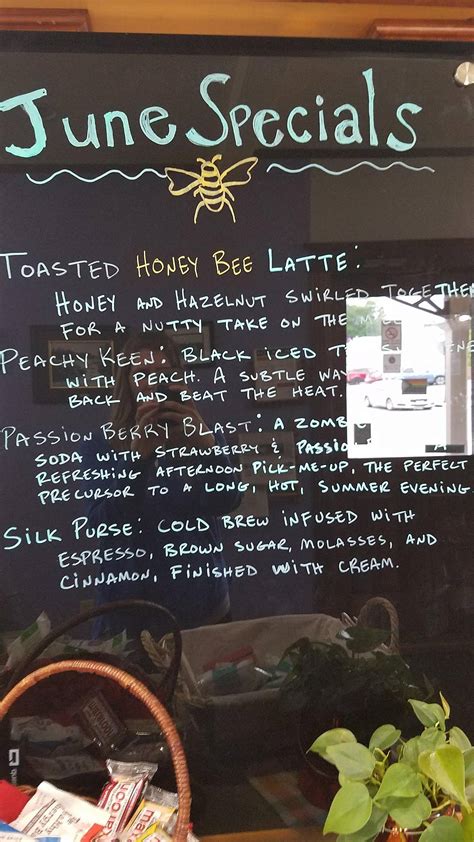 June Specials
TOASTED HONEY BEE LATTE:
HONEY AND HAZELNUT SWIRLED TOGETHER
FOR A NUTTY TAKE ON THE
PEACHY KEEN: BLACK ICED
WITH PEACH. A SUBTLE WAY
BACK AND BEAT THE HEAT.
PASSION BERRY BLAST: A
SODA WITH STRAWBERRY & PASSION
REFRESHING AFTERNOON PICK-ME-UP, THE PERFECT
PRECURSOR TO A LONG, HOT, SUMMER EVENING
SILK PURSE: COLD BREW INFUSED WITH
ESPRESSO, BROWN SUGAR, MOLASSES, AND
CINNAMON, FINISHED WITH CREAM.